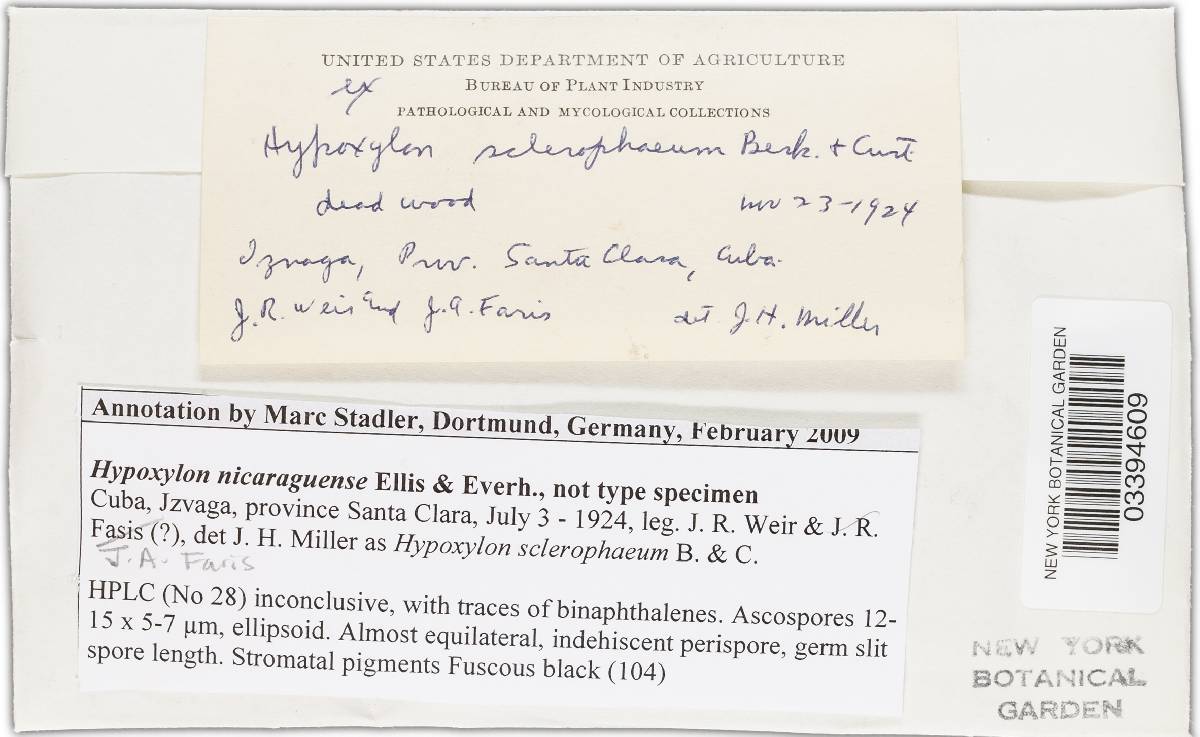 UNITED STATES DEPARTMENT OF AGRICULTURE
ex
BUREAU OF PLANT INDUSTRY
PATHOLOGICAL AND MYCOLOGICAL COLLECTIONS
Hypoxylon sclerophaeum Berk. + Curt.
dead wood
nov 23-1924
Iznaga, Prov. Santa Clara, Cuba.
J.R. Weir and J.A. Faris
det J.H. Miller
Annotation by Marc Stadler, Dortmund, Germany, February 2009
Hypoxylon nicaraguense Ellis & Everh., not type specimen
Cuba, Jzvaga, province Santa Clara, July 3 - 1924, leg. J. R. Weir & J. R.
Fasis (?), det J. H. Miller as Hypoxylon sclerophaeum B. & C.
J. A. Faris
HPLC (No 28) inconclusive, with traces of binaphthalenes. Ascospores 12-
15 x 5-7 µm, ellipsoid. Almost equilateral, indehiscent perispore, germ slit
spore length. Stromatal pigments Fuscous black (104)
NEW YORK BOTANICAL GARDEN
03394609
NEW YORK
BOTANICAL
GARDEN